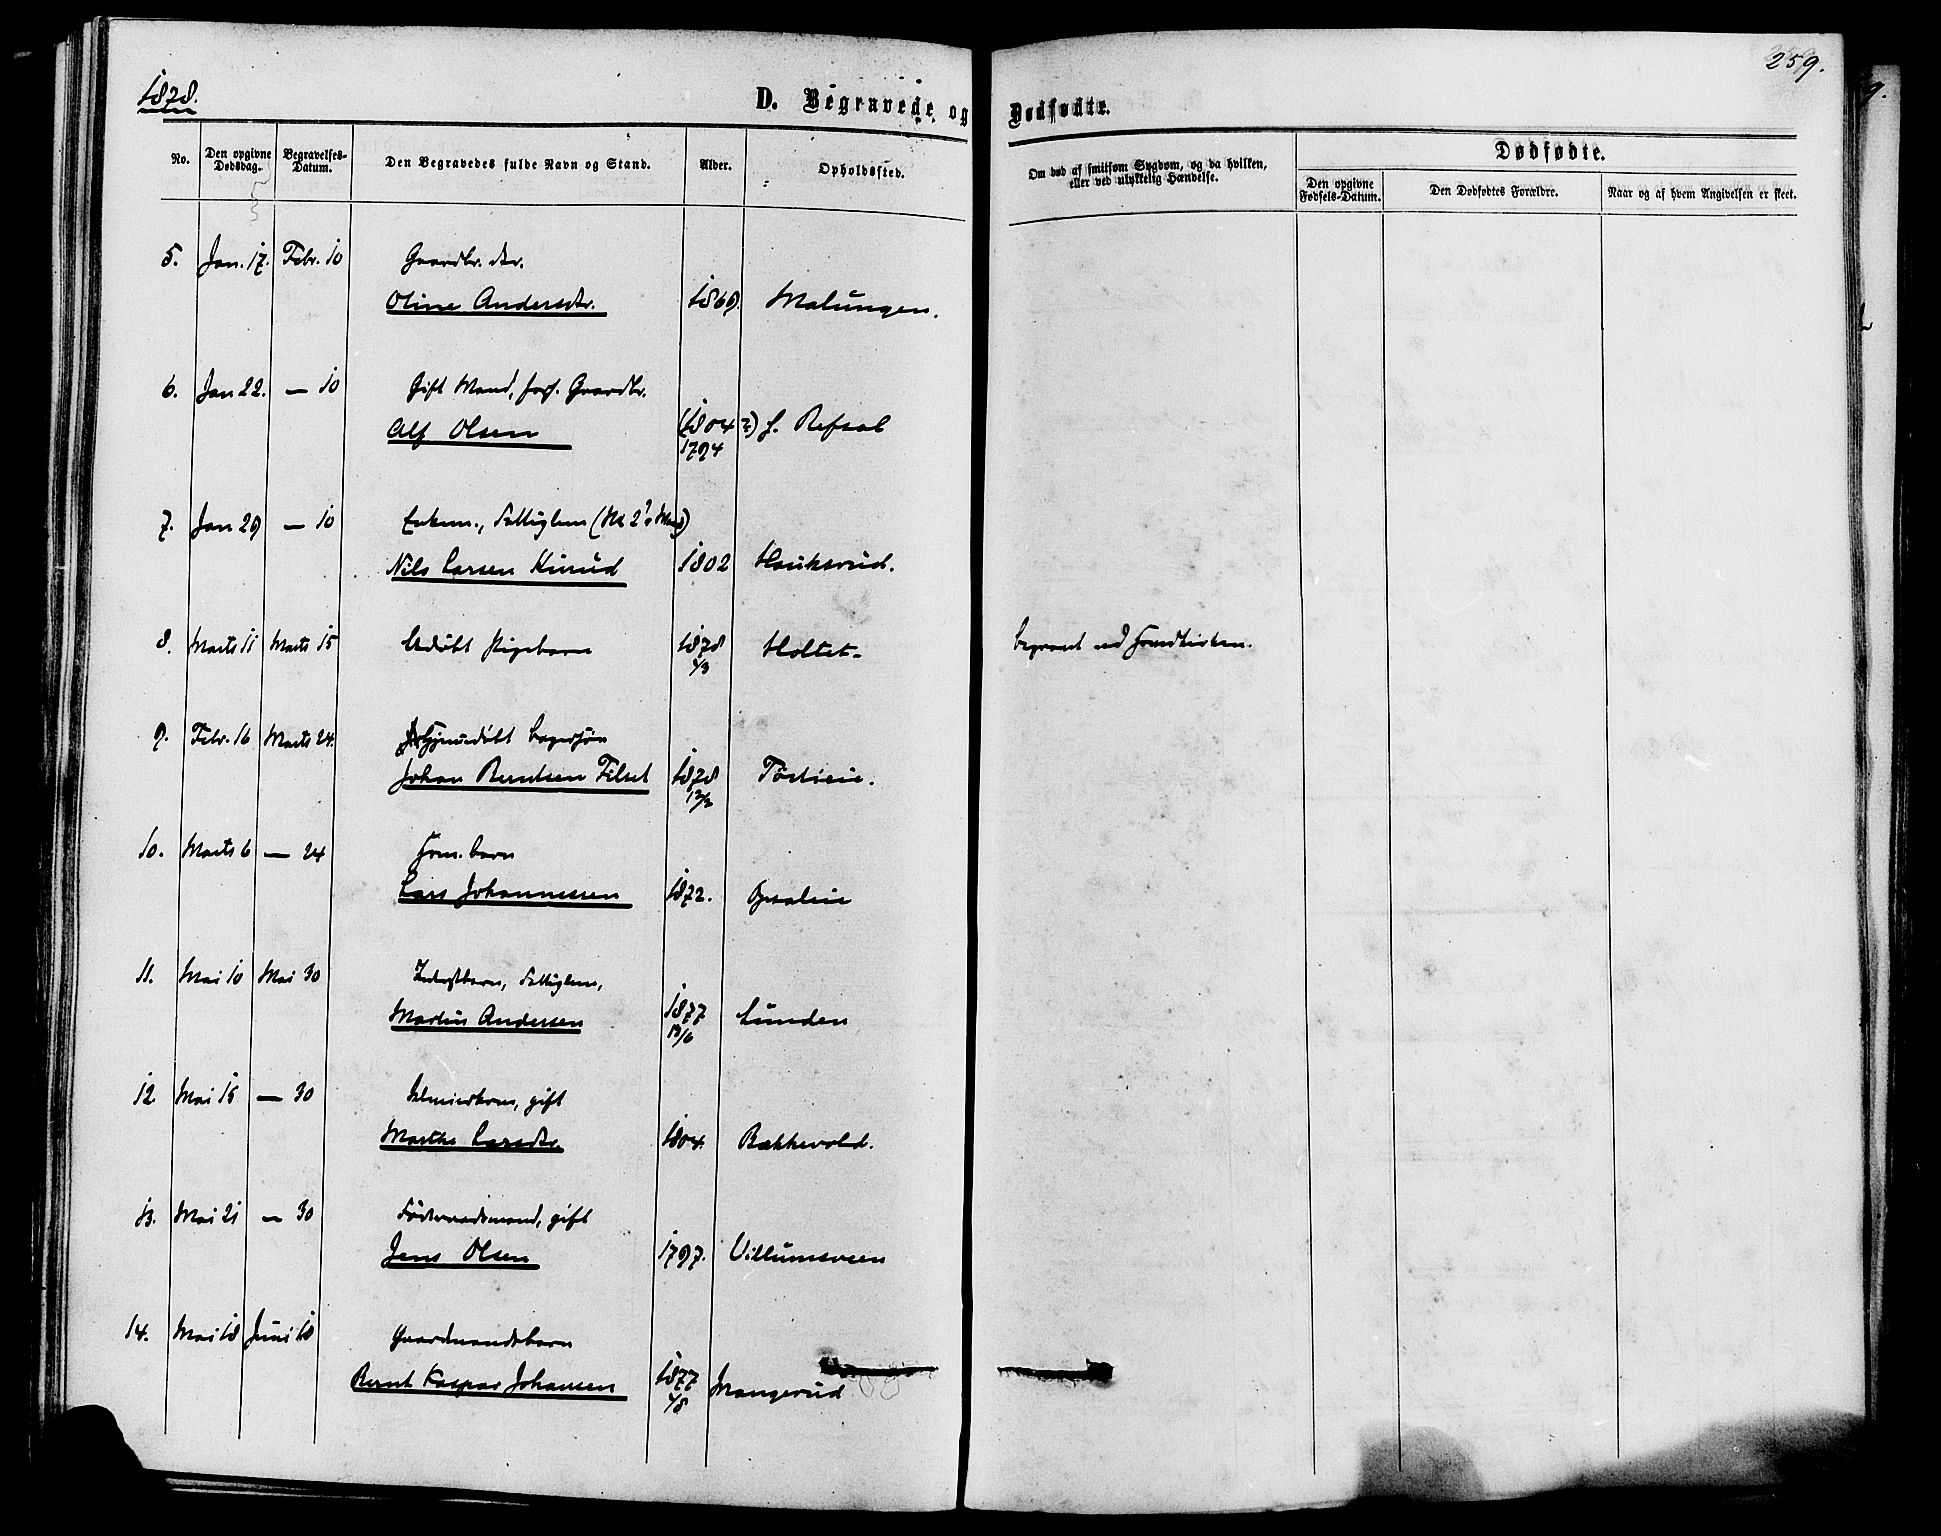 1878.
D. Begravede og Dødfødte.
259.
No.
Den opgivne Dødsdag.
Begravelses-Datum.
Den Begravedes fulde Navn og Stand.
Alder.
Opholdssted.
Om død af smitsom Sygdom, og da hvilken,
eller ved ulykkelig Hændelse.
Dødfødte.
Den opgivne Fødsels-Datum.
Den Dødfødtes Forældre.
Naar og af hvem Angivelsen er skeet.
5. Jan. 17. Febr. 10 Gaardbr. dtr.
Oline Andersdtr. 1869. Malungen.
6. Jan 22. — 10 Gift Mand, forh. Gaardbr.
Alf Olsen (1804?) Refsal
1794
7. Jan 29 — 10 Enkem., Fattiglem
Nils Larsen Kinud 1802 Hauksrud.
8. Marts 11 Marts 15 Udøbt Pigebarn 1878 Holtet. begravet ved
4/3
9. Febr. 16 Marts 24. Hjemmedøbt
Johan Berntsen Filset 1878
12/2
10. Marts 6 — 24 Hsm. barn
Lars Johannessen 1872. Opsaleie
11. Mai 10 Mai 30 Inderstbarn, Fattiglem,
Martin Andersen 1877 Lunden
13/6
12 Mai 15 — 30 gift
Marthe Larsdtr. 1804. Bækkevold.
13. Mai 21 — 30 Føderaadsmand, gift
Jens Olsen 1797. Villumsveen
14. Mai 18 Juni 10 Gaardmandsbarn
Bernt Kaspar Johansen 1877 Mangerud
4/8